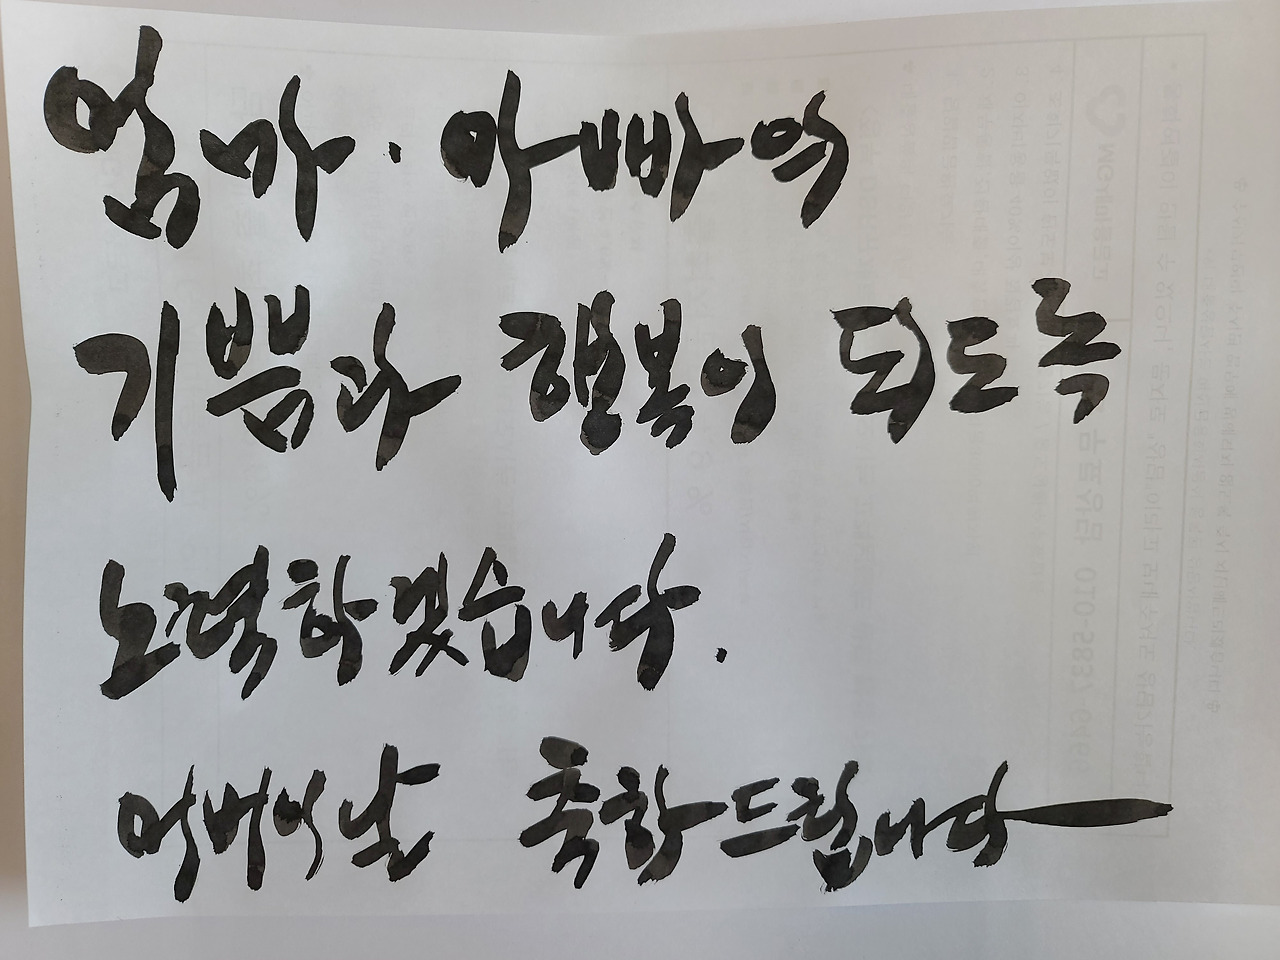 엄마·아빠의
기쁨과 행복이 되도록
노력하겠습니다.
어버이날 축하드립니다